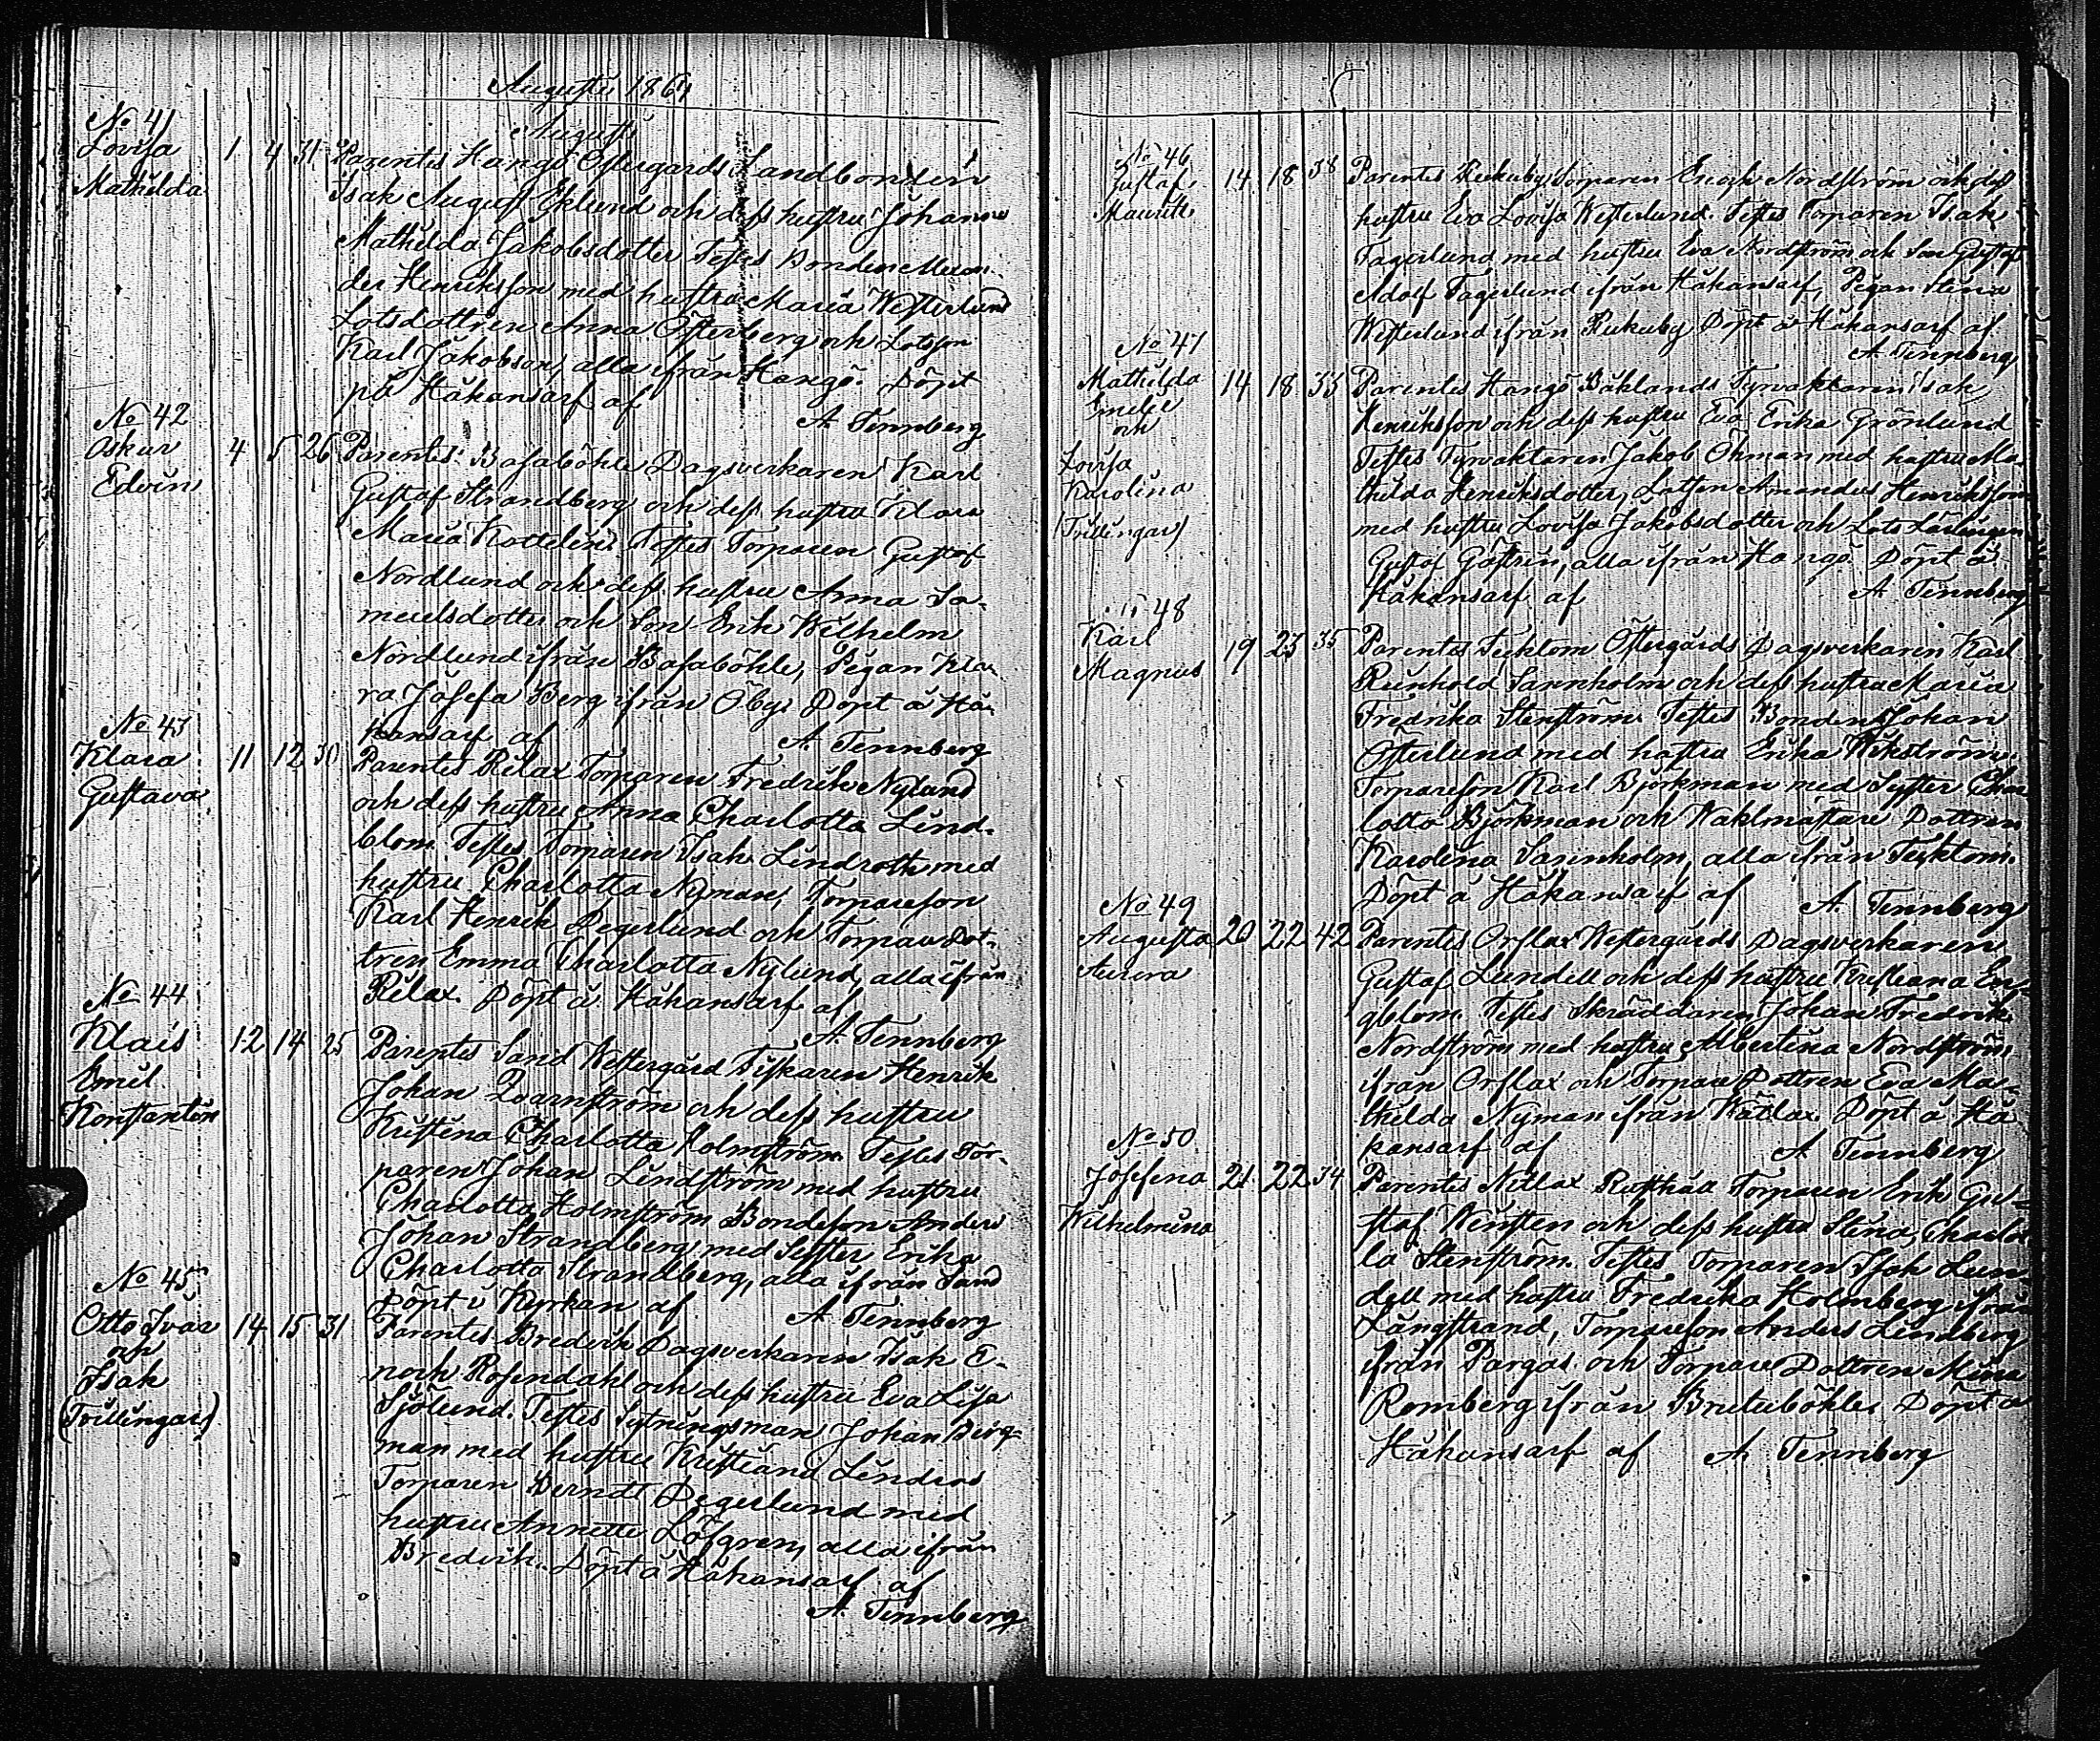 Augusti 1864
Augusti
No 41
Lovisa 1 4 31 Parentes Hangö Östergårds Landbonden
Mathilda Isak August Eklund och dess hustru Johanna
Mathilda Jakobsdotter Testes Bonden Alexan-
der Henriksson med hustru Maria Westerlund
Lotsdottren Anna Österberg och Lotsson
Karl Jakobson, alla ifrån Hangö. Döpt
på Håkansarf af
A. Tennberg
No 42
Oskar 4 5 26 Parentes Basaböhle Dagsverkaren Karl
Edvin Gustaf Strandberg och dess hustru Klara
Maria Kottelin. Testes Torparen Gustaf
Nordlund och dess hustru Anna Sa-
muelsdotter och Son Erik Wilhelm
Nordlund ifrån Basaböhle, Pigan Kla-
ra Josefa Berg ifrån Öby. Döpt å Hå-
kansarf af A. Tennberg
No 43
Klara 11 12 30 Parentes Rilax Torparen Fredrik Nylund
Gustava och dess hustru Anna Charlotta Lind-
blom. Testes Torparen Isak Lindroth med
hustru Charlotta Nyman, Torpareson
Karl Henrik Degerlund och Torparedot-
tren Emma Charlotta Nylund, alla ifrån
Rilax. Döpt å Håkansarf af
A. Tennberg
No 44
Klais 12 14 25 Parentes Sand Westergård Fiskaren Henrik
Emil Johan Qvarnström och dess hustru
Konstantin Kristina Charlotta Holmström Testes Tor-
paren Johan Lindström med hustru
Charlotta Holmström Bondeson Anders
Johan Strandberg med Syster Erika
Charlotta Strandberg, alla ifrån Sand
Döpt i Kyrkan af A. Tennberg
No 45
Otto Ivar 14 15 31 Parentes Bredvik Dagsverkaren Isak E-
och noch Rosendahl och dess hustru Eva Lisa
Isak Sjölund. Testes Sytningsman Johan Berg-
(Tvillingar) man med hustru Kristiana Lindros
Torparen Berndt Degerlund med
hustru Annette Löfgren, alla ifrån
Bredvik. Döpt å Håkansarf af
A. Tennberg
No 46
Gustaf 14 18 38 Parentes Rukuby Torparen Enoch Nordström och dess
Mauritz hustru Eva Lovisa Westerlund. Testes Torparen Isak
Fagerlund med hustru Eva Nordström och Son Gustaf
Adolf Fagerlund ifrån Håkansarf, Pigan Stina
Westerlund ifrån Rukuby Döpt å Håkansarf af
A. Tennberg
No 47
Mathilda 14 18 33 Parentes Hangö Båklands Fyrvaktaren Isak
Emelie Henriksson och dess hustru Eva Erika Grönlund
och Testes Fyrvaktaren Jakob Öhman med hustru Ma-
Lovisa thilda Henriksdotter, Lotsen Amandus Henriksson
Karolina med hustru Lovisa Jakobsdotter och Lots Lärlingen
(Tvillingar) Gustaf Gästrin, alla ifrån Hangö. Döpt å
Håkansarf af A. Tennberg
No 48
Karl 19 23 35 Parentes Tecktom Östergårds Dagsverkaren Karl
Magnus Reinhold Sannholm och dess hustru Maria
Fredrika Stenström. Testes Bonden Johan
Österlund med hustru Erika Wikström
Torpareson Karl Björkman med Syster Char-
lotta Björkman och Waktmästare Dottren
Karolina Sannholm, alla ifrån Tecktom.
Döpt å Håkansarf af A. Tennberg
No 49
Augusta 20 22 42 Parentes Orslax Westergårds Dagsverkaren
Aurora Gustaf Lundell och dess hustru Kristiana En-
gblom. Testes Skräddaren Johan Fredrik
Nordström med hustru Albertina Nordström
ifrån Orslax och Torpare Dottren Eva Ma-
thilda Nyman ifrån Wättlax. Döpt å Hå
kansarf af A. Tennberg
No 50
Josefina 21 22 34 Parentes Nitlax Rusthåll Torparen Erik Gu-
Wilhelmina staf Winsten och dess hustru Stina Charlot-
ta Stenström. Testes Torparen Isak Lun-
dell med hustru Fredrika Holmberg ifrån
Långstrand, Torpareson Anders Lindberg
ifrån Pargas och Torpare Dottren Mina
Romberg ifrån Bruteböhle. Döpt å
Håkansarf af A. Tennberg